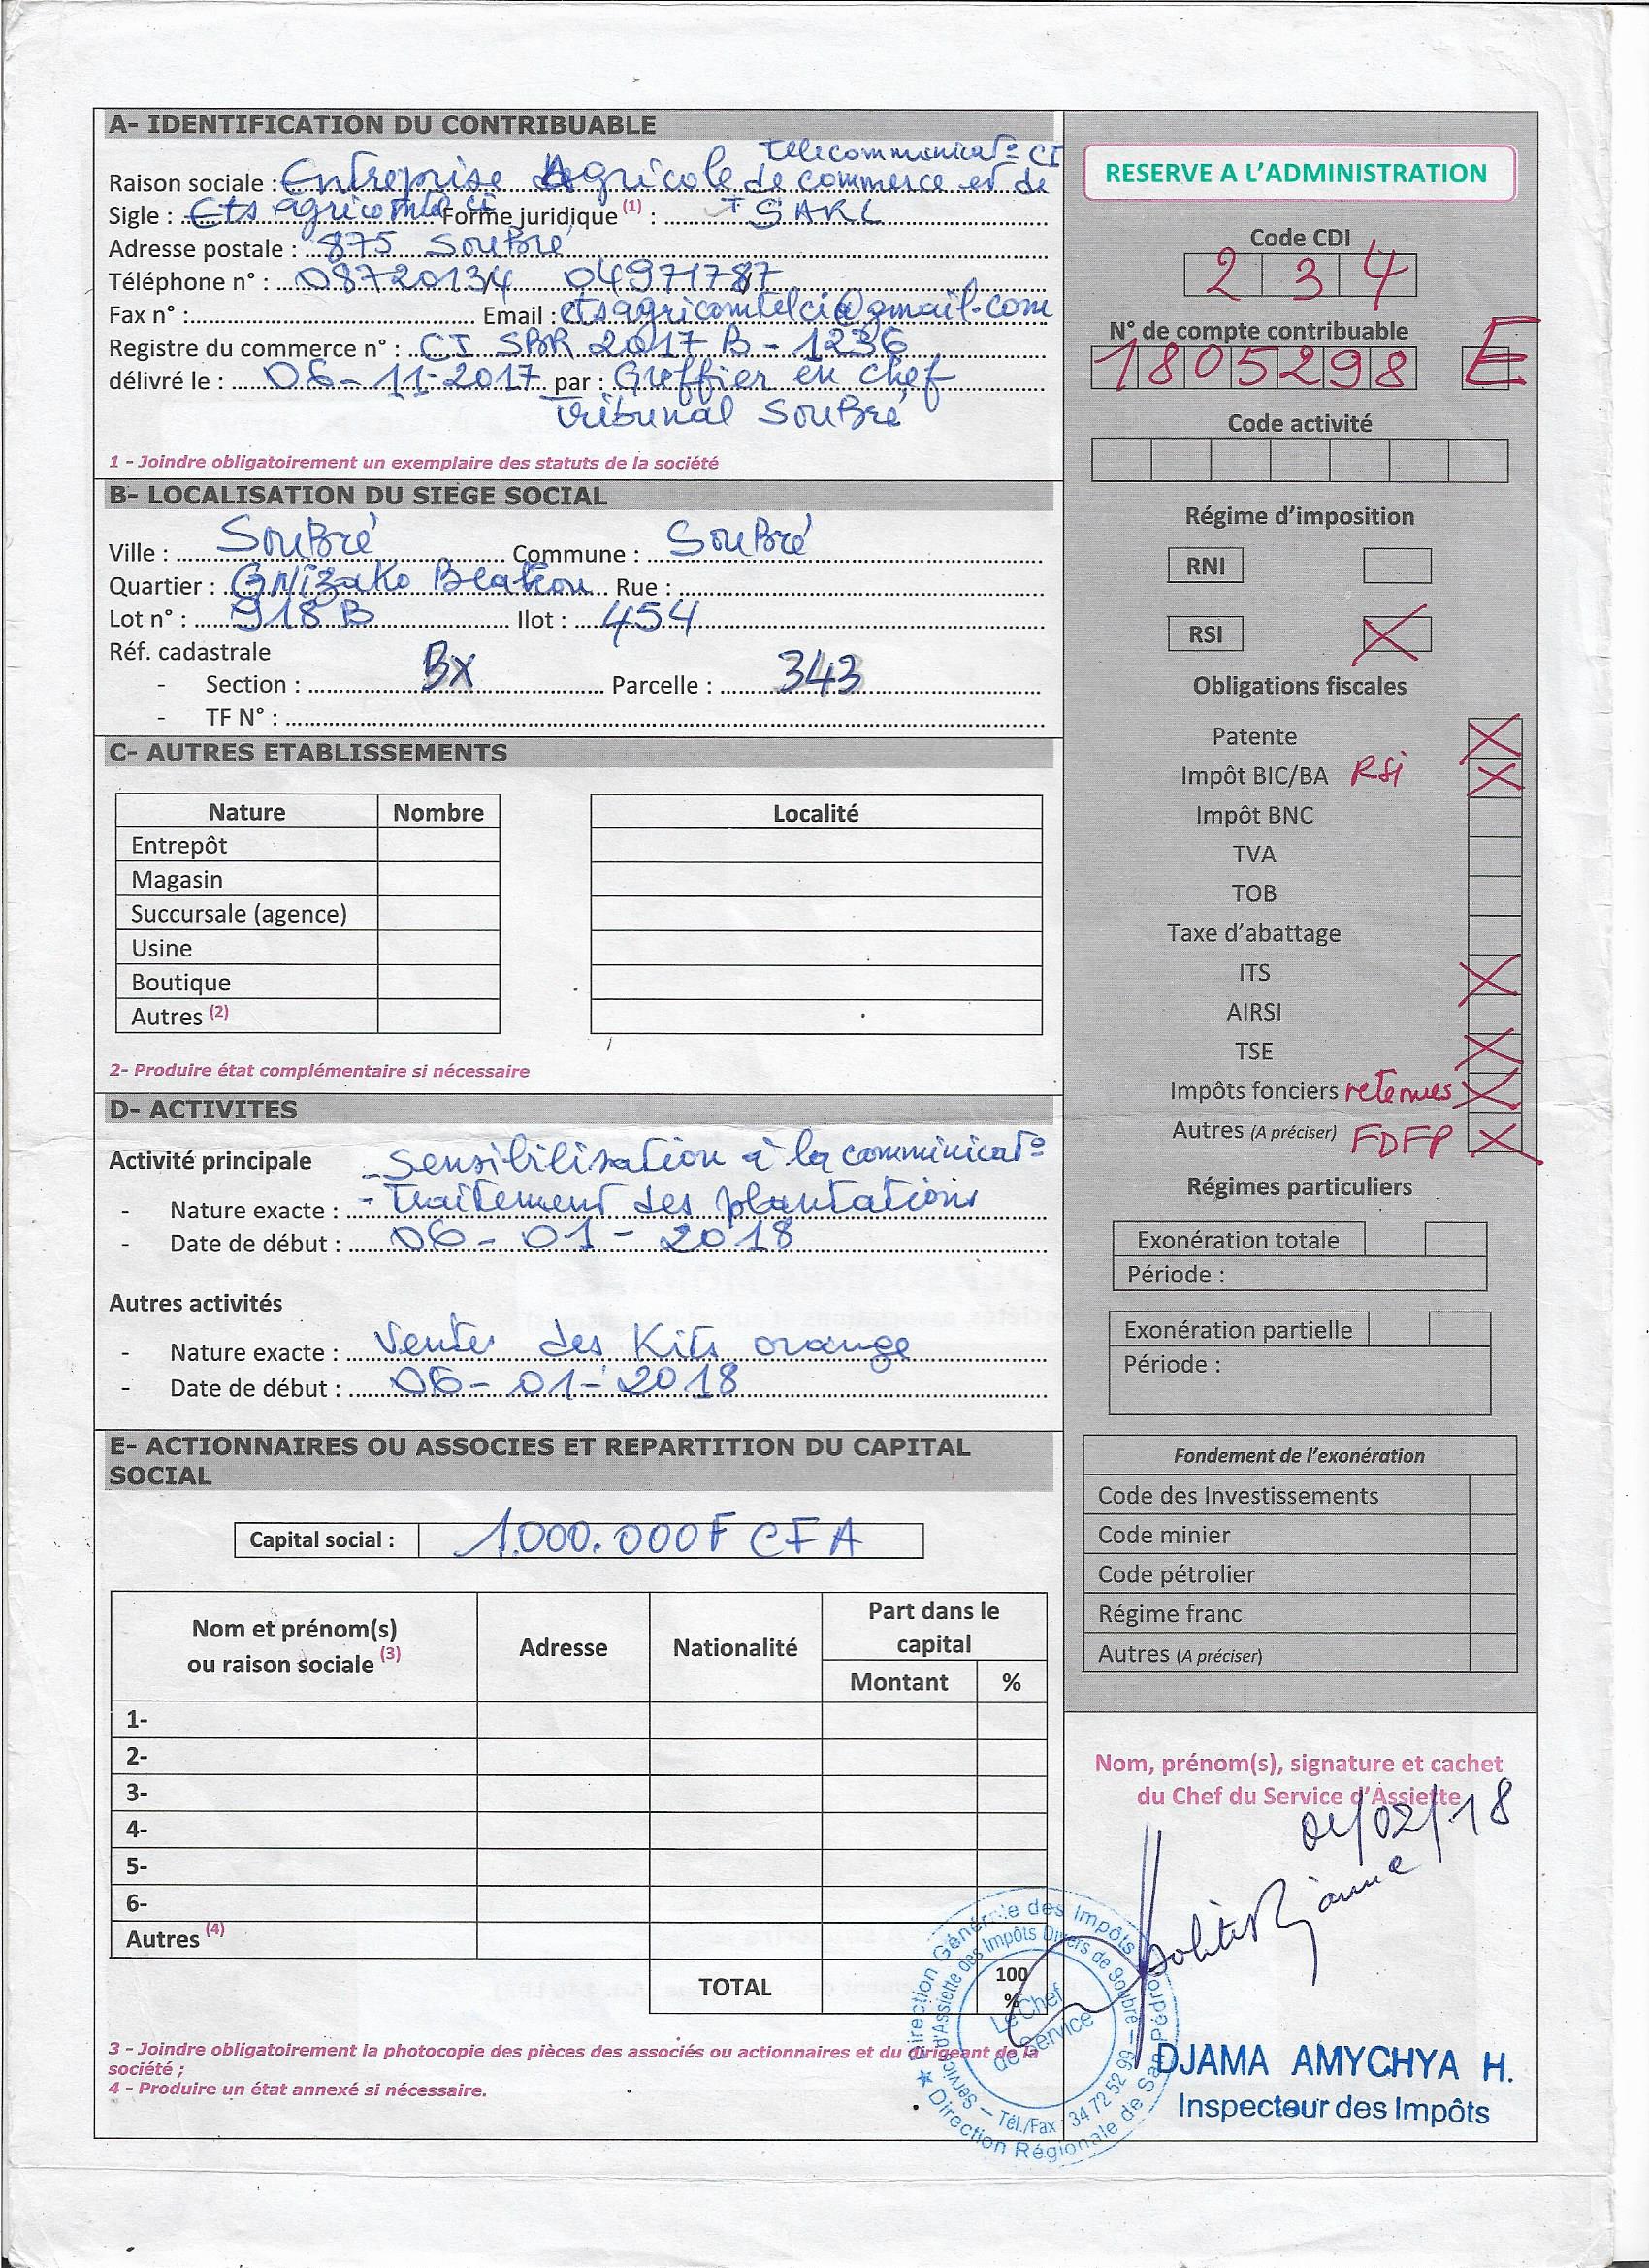 A- IDENTIFICATION DU CONTRIBUABLE
telecommunicat° CI
Raison sociale : Entreprise Agricole de commerce et de
Sigle : Ets agricomtel ci Forme juridique (1) : SARL
Adresse postale : 875 SouBré
Téléphone n° : 08720134 04971787
Fax n° : Email : etsagricomtelci@gmail.com
Registre du commerce n° : CI SBR 2017 B - 1236
délivré le : 06-11-2017 par : Greffier en chef
tribunal SouBré
1 - Joindre obligatoirement un exemplaire des statuts de la société
B- LOCALISATION DU SIEGE SOCIAL
Ville : SouBré Commune : SouBré
Quartier : Gnizako Rue :
Lot n° : 918 B Ilot : 454
Réf. cadastrale
- Section : BX Parcelle : 343
- TF N° :
C- AUTRES ETABLISSEMENTS
Nature Nombre Localité
Entrepôt
Magasin
Succursale (agence)
Usine
Boutique
Autres (2)
2- Produire état complémentaire si nécessaire
D- ACTIVITES
Activité principale - Sensibilisation à la comminicat°
- Nature exacte : - traitement des plantations
- Date de début : 06-01-2018
Autres activités
- Nature exacte : Ventes des Kits orange
- Date de début : 06-01-2018
E- ACTIONNAIRES OU ASSOCIES ET REPARTITION DU CAPITAL
SOCIAL
Capital social : 1.000.000 F CFA
Nom et prénom(s)
ou raison sociale (3)
Adresse
Nationalité
Part dans le
capital
Montant %
1-
2-
3-
4-
5-
6-
Autres (4)
TOTAL 100
%
3 - Joindre obligatoirement la photocopie des pièces des associés ou actionnaires et du dirigeant de la
société ;
4 - Produire un état annexé si nécessaire.
RESERVE A L'ADMINISTRATION
Code CDI
2 3 4
N° de compte contribuable
1805298 E
Code activité
Régime d'imposition
RNI
RSI X
Obligations fiscales
Patente X
Impôt BIC/BA RSi X
Impôt BNC
TVA
TOB
Taxe d'abattage
ITS X
AIRSI
TSE X
Impôts fonciers retenues X
Autres (A préciser) FDFP X
Régimes particuliers
Exonération totale
Période :
Exonération partielle
Période :
Fondement de l'exonération
Code des Investissements
Code minier
Code pétrolier
Régime franc
Autres (A préciser)
Nom, prénom(s), signature et cachet
du Chef du Service d'Assiette
/02/18
Direction Générale des Impôts
Service d'Assiette des Impôts Divers de Soubré
Le Chef
de Service
Tél./Fax 34 72 52 99
Direction Régionale de San Pédro
DJAMA AMYCHYA H.
Inspecteur des Impôts